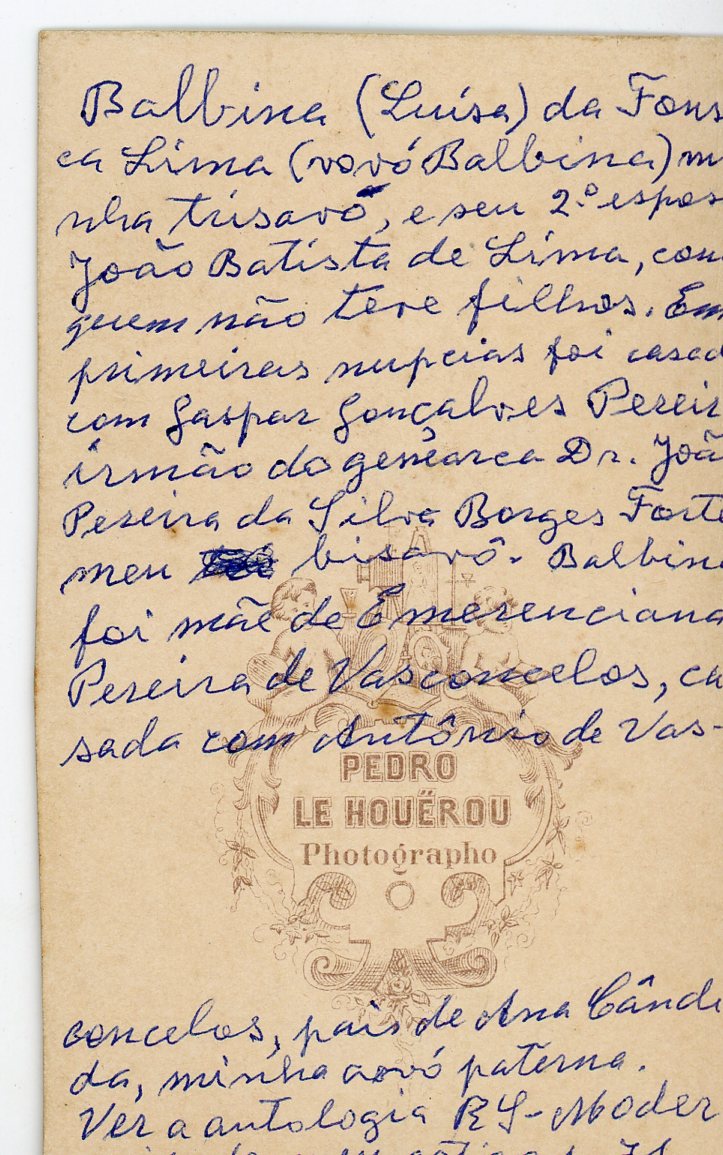 Balbina (Luísa) da Fons
ca Lima (vovó Balbina) mi
nha trisavó, e seu 2.º espos
João Batista de Lima, com
quem não teve filhos. Em
primeiras nupcias foi casad
com Gaspar Gonçalves Pereir
irmão do genearca Dr. Joã
Pereira da Silva Borges Forte
meu bisavô. Balbina
foi mãe de Emerenciana
Pereira de Vasconcelos, ca
sada com Antônio de Vas-
PEDRO
LE HOUËROU
Photographo
concelos, pais de Ana Cândi
da, minha avó paterna.
Ver a antologia RS-Moder